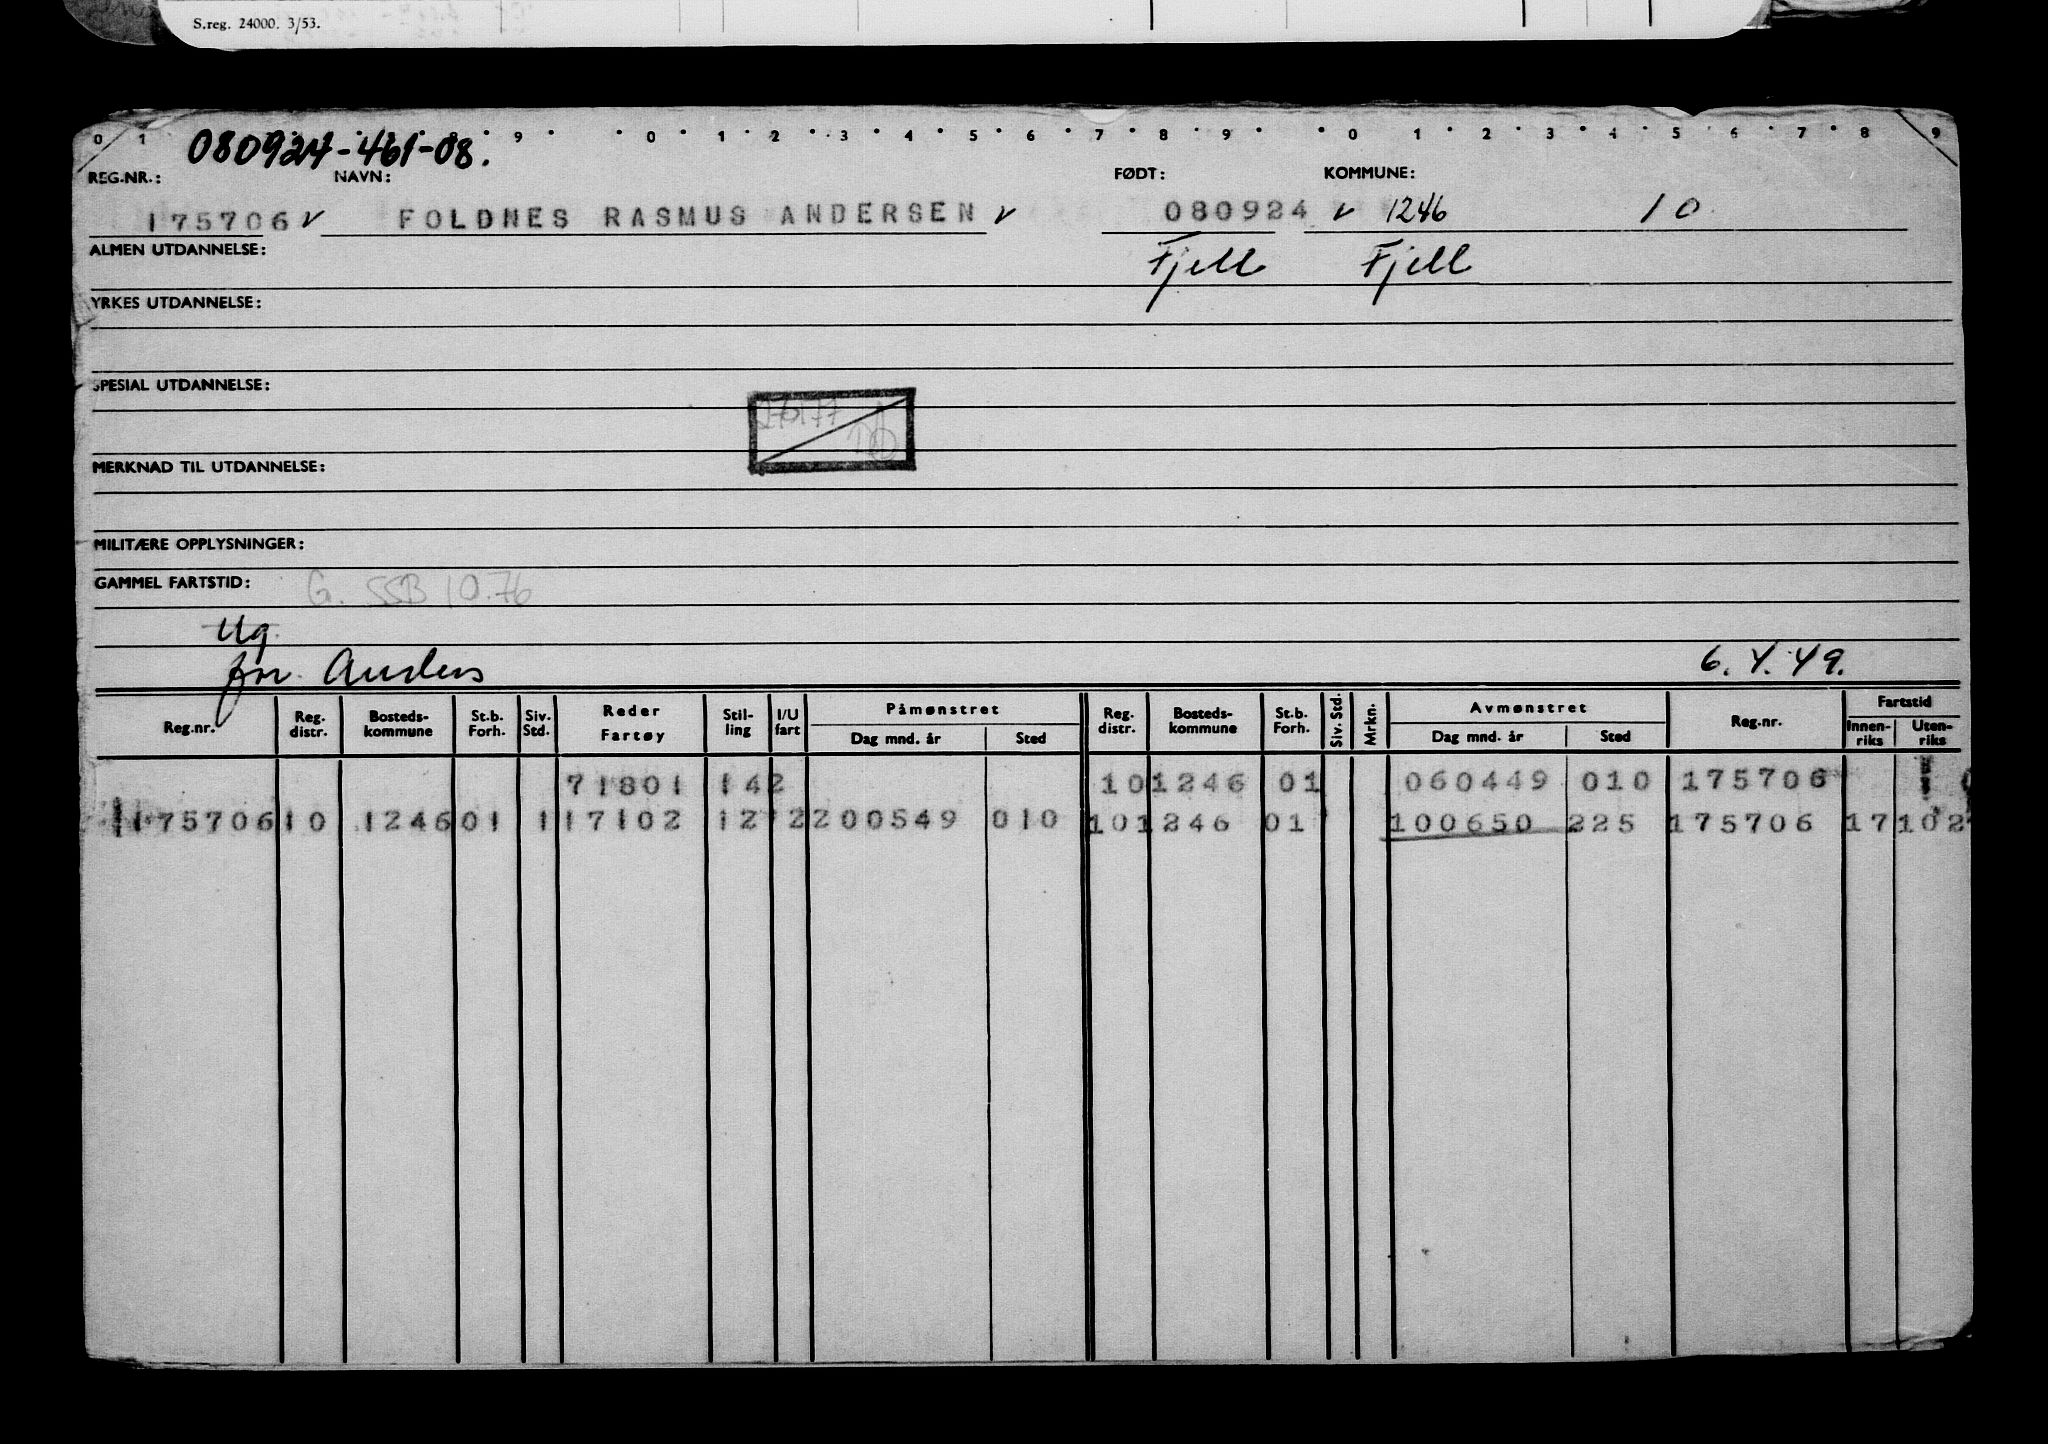 S.reg. 24000. 3/53.
0 1 9 0 1 2 3 4 5 6 7 8 9 0 1 2 3 4 5 6 7 8 9
080924-461-08.
REG.NR.: NAVN: FØDT: KOMMUNE:
175706 v FOLDNES RASMUS ANDERSEN v 080924 v 1246 10
ALMEN UTDANNELSE: Fjell Fjell
YRKES UTDANNELSE:
SPESIAL UTDANNELSE:
MERKNAD TIL UTDANNELSE:
MILITÆRE OPPLYSNINGER:
GAMMEL FARTSTID: G. SSB 10.76
Ug
fnr. Anders 6.4.49.
Reg.nr. Reg. distr. Bosteds-kommune St.b. Forh. Siv. Std. Reder Fartøy Stil-ling I/U fart Påmønstret Dag mnd. år Sted Reg. distr. Bosteds-kommune St.b. Forh. Siv. Std. Mrkn. Avmønstret Dag mnd. år Sted Reg.nr. Fartstid Innen-riks Uten-riks
71801 142 10 1246 01 060449 010 175706 1
175706 10 1246 01 1 17102 12 2 200549 010 10 1246 01 100650 225 175706 17 102